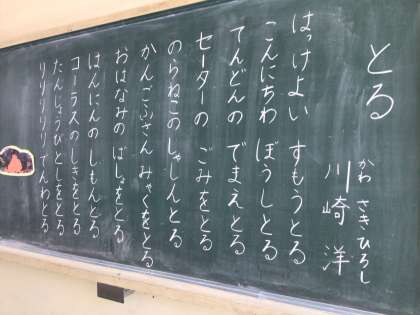 とる
かわ さき ひろし
川崎 洋
はっけよい すもうとる
こんにちわ ぼうしとる
てんどんの でまえとる
セーターの ごみをとる
のらねこの しゃしんとる
かんごふさん みゃくをとる
おはなみの ばしょをとる
はんにんの しもんとる
コーラスの しきをとる
たんじょうび としをとる
リリリリリ でんわとる